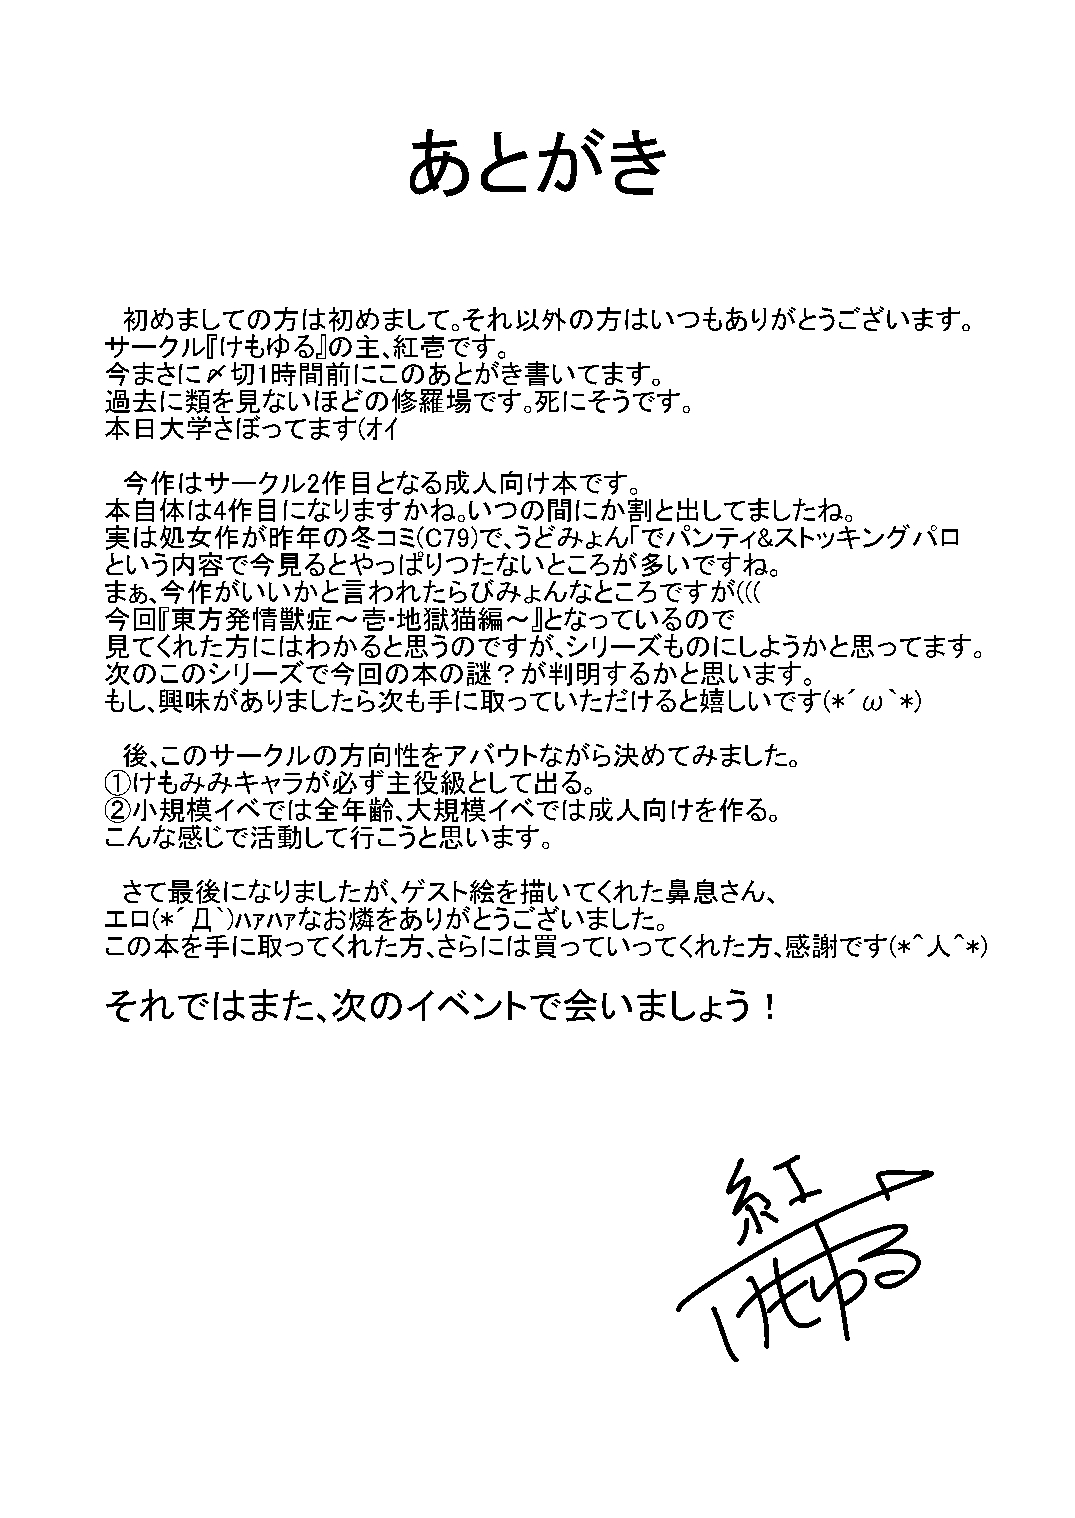 あとがき
初めましての方は初めまして。それ以外の方はいつもありがとうございます。
サークル『けもゆる』の主、紅壱です。
今まさに〆切1時間前にこのあとがき書いてます。
過去に類を見ないほどの修羅場です。死にそうです。
本日大学さぼってます(ｵｲ
今作はサークル2作目となる成人向け本です。
本自体は4作目になりますかね。いつの間にか割と出してましたね。
実は処女作が昨年の冬コミ(C79)で、うどみょん「でパンティ&ストッキングパロ
という内容で今見るとやっぱりつたないところが多いですね。
まぁ、今作がいいかと言われたらびみょんなところですが(((
今回『東方発情獣症～壱・地獄猫編～』となっているので
見てくれた方にはわかると思うのですが、シリーズものにしようかと思ってます。
次のこのシリーズで今回の本の謎？が判明するかと思います。
もし、興味がありましたら次も手に取っていただけると嬉しいです(*´ω`*)
後、このサークルの方向性をアバウトながら決めてみました。
①けもみみキャラが必ず主役級として出る。
②小規模イベでは全年齢、大規模イベでは成人向けを作る。
こんな感じで活動して行こうと思います。
さて最後になりましたが、ゲスト絵を描いてくれた鼻息さん、
エロ(*´Д`)ﾊｧﾊｧなお燐をありがとうございました。
この本を手に取ってくれた方、さらには買っていってくれた方、感謝です(*^人^*)
それではまた、次のイベントで会いましょう！
紅
けもゆる